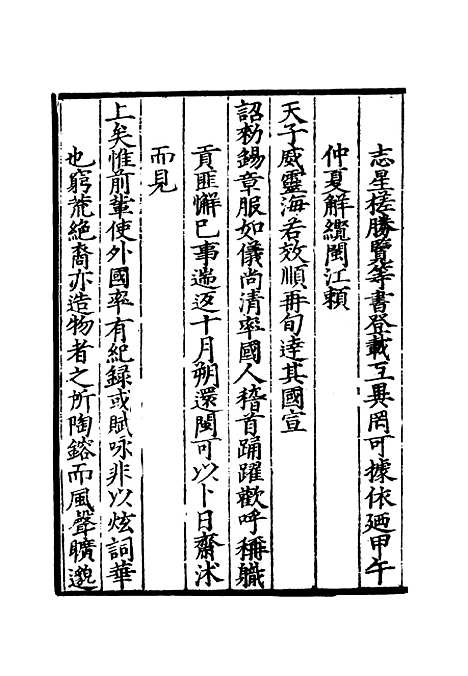 志星槎勝覽等書登載互異罔可據依廼甲午
仲夏解纜閩江頼
天子威靈海若效順冉旬逹其國宣
詔勑錫章服如儀尚清率國人稽首踊躍歡呼稱職
貢匪懈巳事遄返十月朔還閩可以卜日齋沐
而見
上矣惟前軰使外國率有紀録或賦咏非以炫詞華
也窮荒絶裔亦造物者之所陶鎔而風聲曠邈